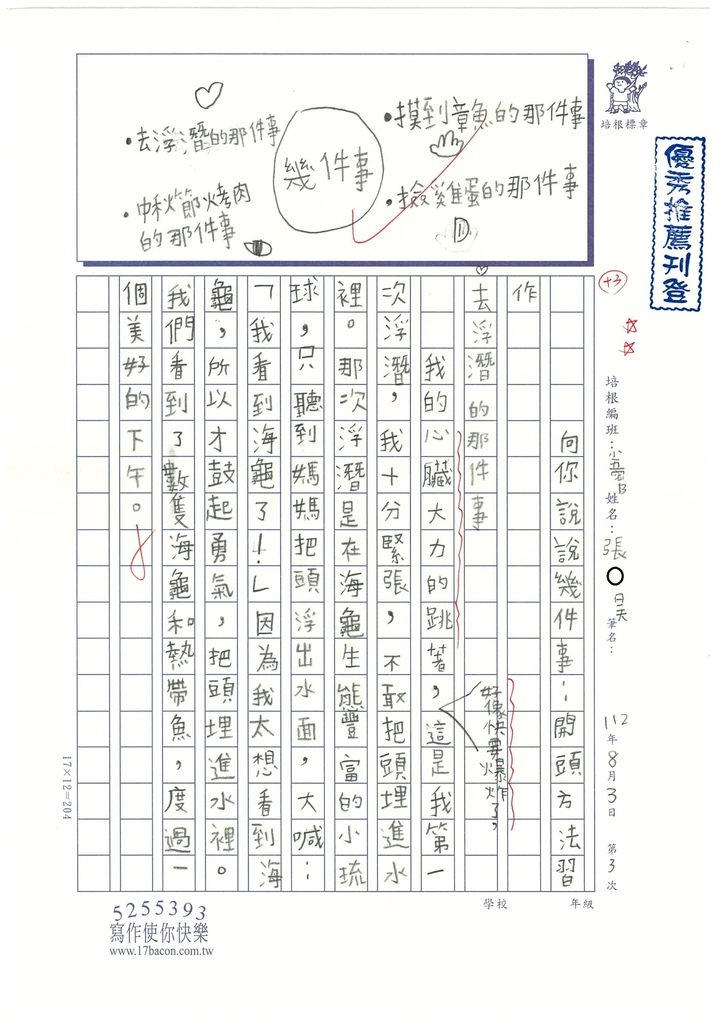 •去浮潛的那件事
•中秋節烤肉
的那件事
幾件事
•摸到章魚的那件事
•撿雞蛋的那件事
培根標章
優秀推薦刊登
+3
培根編班：小高B 姓名：張〇昊 筆名：
112年8月3日 第3次
年級
學校
向你說說幾件事：開頭方法習
作
去浮潛的那件事
我的心臟大力的跳著，這是我第一
好像快要爆炸了，
次浮潛，我十分緊張，不敢把頭埋進水
裡。那次浮潛是在海龜生態豐富的小琉
球，只聽到媽媽把頭浮出水面，大喊：
「我看到海龜了！」因為我太想看到海
龜，所以才鼓起勇氣，把頭埋進水裡。
我們看到了數隻海龜和熱帶魚，度過一
個美好的下午。
17×12=204
5255393
寫作使你快樂
www.17bacon.com.tw